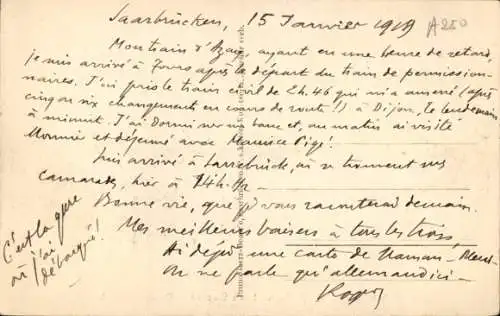 Saarbrücken, 15 Janvier 1919
A250
Mon train d'Azay, ayant eu une heure de retard,
je suis arrivé à Tours après le départ du train de permission-
naires. J'ai pris le train civil de 2h.46 qui m'a amené (après
cinq ou six changements en cours de route!!) à Dijon, le lendemain
à minuit. J'ai dormi sur un banc et, au matin ai visité
Monnier et déjeuné avec Maurice
Suis arrivé à Sarrebrück, où se trouvent mes
camarades, hier à 14h.
Bonne vie, que je vous raconterai demain.
Mes meilleurs baisers à tous les trois,
Ai déjà une carte de Maman
On ne parle qu'allemand ici
Roger
C'est la gare
où j'ai
débarqué!